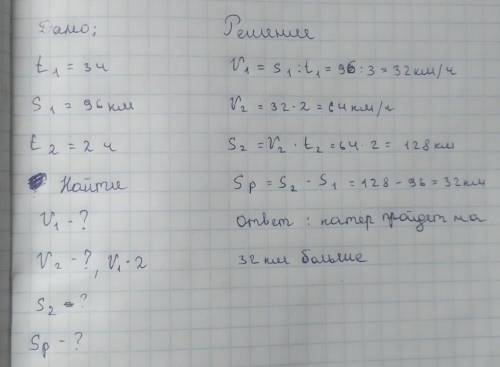 Дано;
t1 = 3ч
S1 = 96км
t2 = 2 ч
Найти
V1 - ?
V2 - ?, V1·2
S2 - ?
Sр - ?
Решение
V1 = S1 : t1 = 96 : 3 = 32км/ч
V2 = 32·2 = 64км/ч
S2 = V2 · t2 = 64·2 = 128км
Sр = S2 - S1 = 128 - 96 = 32км
ответ : катер пройдет на
32км больше